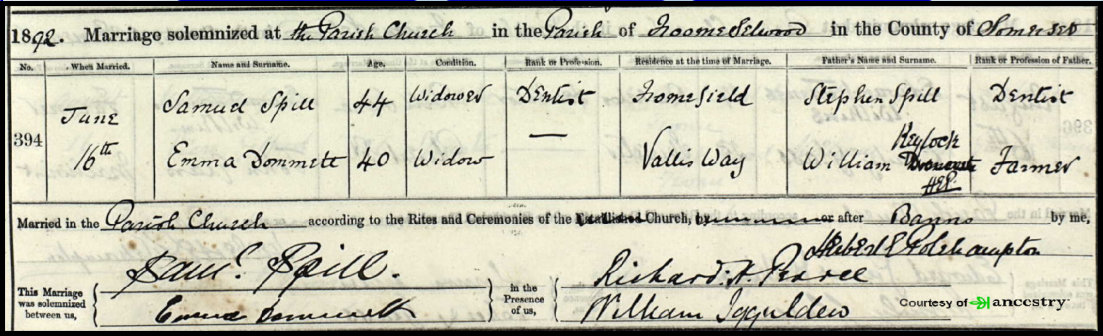 1892. Marriage solemnized at the Parish Church in the Parish of Froome Selwood in the County of Somerset
No. When Married. Name and Surname. Age. Condition. Rank or Profession. Residence at the time of Marriage. Father's Name and Surname. Rank or Profession of Father.
394 June 16th
Samuel Spill 44 Widower Dentist Fromefield Stephen Spill Dentist
Keylock
Emma Dommett 40 Widow — Vallis Way William Farmer
HEP
Married in the Parish Church according to the Rites and Ceremonies of the Established Church, by or after Banns by me,
Herbert E Polehampton
This Marriage was solemnized between us, Saml. Spill. in the Presence of us, Richard. H. Pearce
Emma Dommett William Iggulden
Courtesy of ancestry